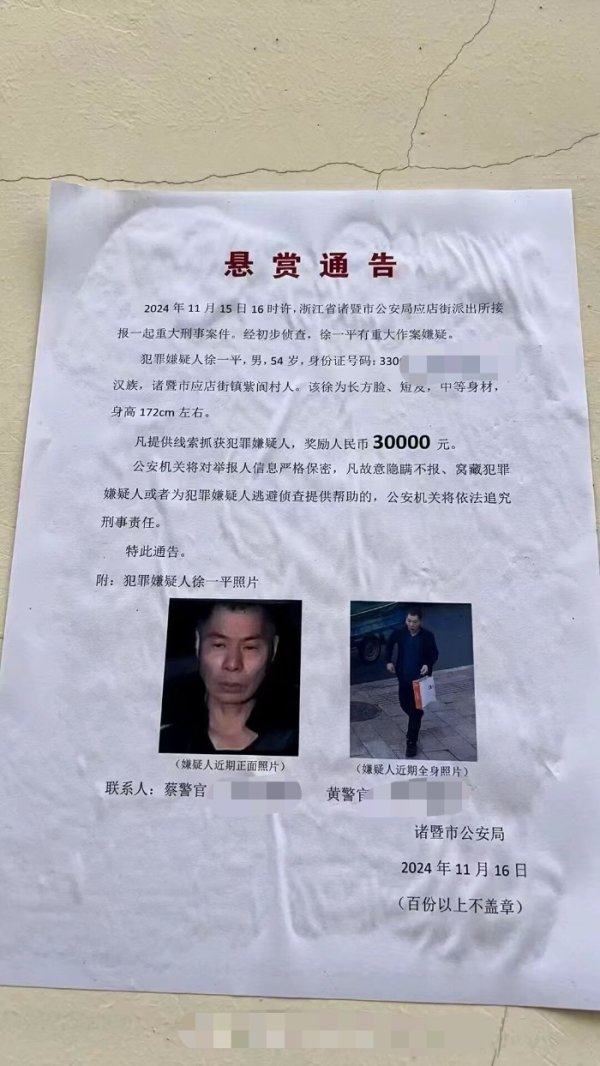 悬赏通告
2024 年 11 月 15 日 16 时许，浙江省诸暨市公安局应店街派出所接
报一起重大刑事案件。经初步侦查，徐一平有重大作案嫌疑。
犯罪嫌疑人徐一平，男，54 岁，身份证号码：330
汉族，诸暨市应店街镇紫阆村人。该徐为长方脸、短发，中等身材，
身高 172cm 左右。
凡提供线索抓获犯罪嫌疑人，奖励人民币 30000 元。
公安机关将对举报人信息严格保密，凡故意隐瞒不报、窝藏犯罪
嫌疑人或者为犯罪嫌疑人逃避侦查提供帮助的，公安机关将依法追究
刑事责任。
特此通告。
附：犯罪嫌疑人徐一平照片
（嫌疑人近期正面照片） （嫌疑人近期全身照片）
联系人：蔡警官 黄警官
诸暨市公安局
2024 年 11 月 16 日
（百份以上不盖章）